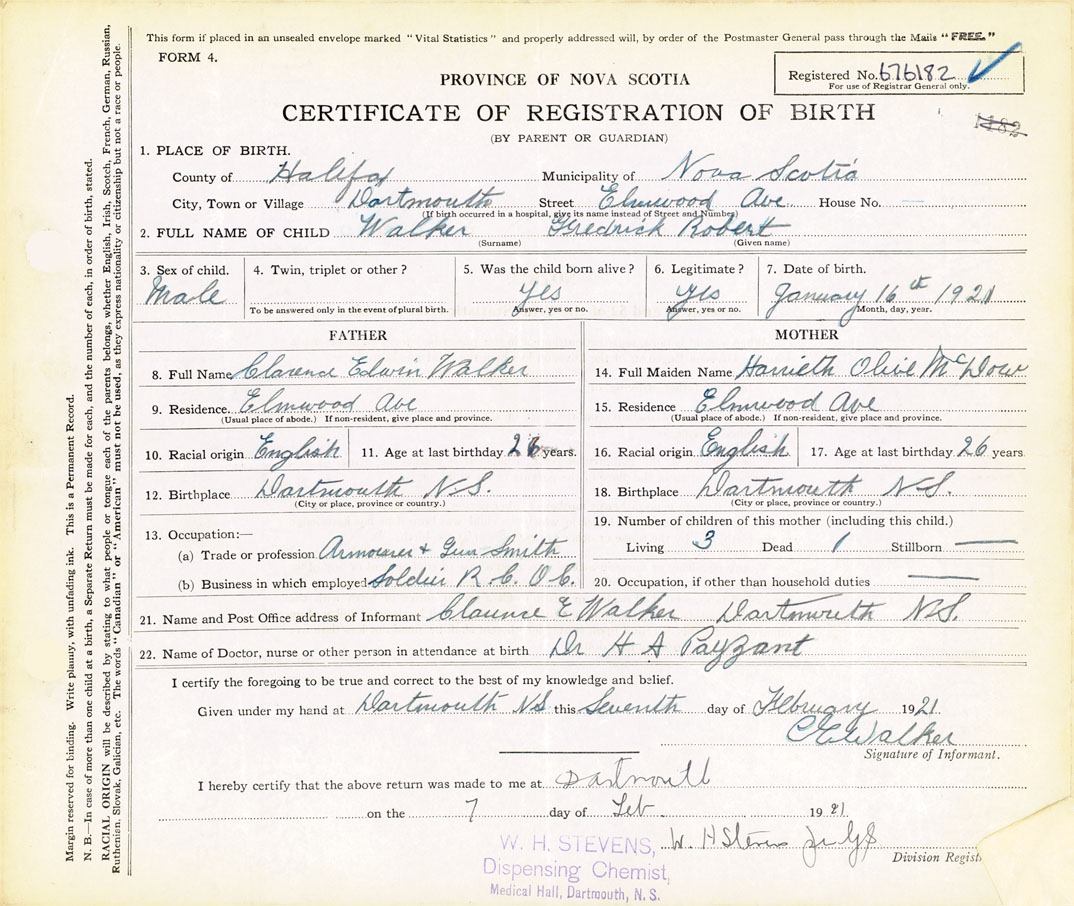 This form if placed in an unsealed envelope marked "Vital Statistics" and properly addressed will, by order of the Postmaster General pass through the Mails "FREE."
FORM 4.
PROVINCE OF NOVA SCOTIA
Registered No. 676182
For use of Registrar General only.
CERTIFICATE OF REGISTRATION OF BIRTH
1182
(BY PARENT OR GUARDIAN)
1. PLACE OF BIRTH.
County of Halifax Municipality of Nova Scotia
City, Town or Village Dartmouth Street Elmwood Ave. House No. —
(If birth occurred in a hospital, give its name instead of Street and Number)
2. FULL NAME OF CHILD Walker Fredrick Robert
(Surname) (Given name)
3. Sex of child. 4. Twin, triplet or other? 5. Was the child born alive? 6. Legitimate? 7. Date of birth.
Male Yes Yes January 16th 1921
To be answered only in the event of plural birth. Answer, yes or no. Answer, yes or no. Month, day, year.
FATHER
8. Full Name Clarence Edwin Walker
9. Residence Elmwood Ave
(Usual place of abode.) If non-resident, give place and province.
10. Racial origin English 11. Age at last birthday 26 years.
12. Birthplace Dartmouth N.S.
(City or place, province or country.)
13. Occupation:—
(a) Trade or profession Armourer + Gun Smith
(b) Business in which employed Soldier R. C. O. C.
MOTHER
14. Full Maiden Name Harrieth Olive McDow
15. Residence Elmwood Ave
(Usual place of abode.) If non-resident, give place and province.
16. Racial origin English 17. Age at last birthday 26 years
18. Birthplace Dartmouth N.S.
(City or place, province or country.)
19. Number of children of this mother (including this child.)
Living 3 Dead 1 Stillborn —
20. Occupation, if other than household duties —
21. Name and Post Office address of Informant Clarence E Walker Dartmouth N.S.
22. Name of Doctor, nurse or other person in attendance at birth Dr H A Payzant
I certify the foregoing to be true and correct to the best of my knowledge and belief.
Given under my hand at Dartmouth N.S. this Seventh day of February 1921
C E Walker
Signature of Informant.
I hereby certify that the above return was made to me at Dartmouth
on the 7 day of Feb 1921
W. H. STEVENS, W. H Stevens
Division Regist
Dispensing Chemist,
Medical Hall, Dartmouth, N. S.
Margin reserved for binding. Write plainly, with unfading ink. This is a Permanent Record.
N. B.—In case of more than one child at a birth, a Separate Return must be made for each, and the number of each, in order of birth, stated.
RACIAL ORIGIN will be described by stating to what people or tongue each of the parents belongs, whether English, Irish, Scotch, French, German, Russian,
Ruthenian, Slovak, Galician, etc. The words "Canadian" or "American" must not be used, as they express nationality or citizenship but not a race or people.